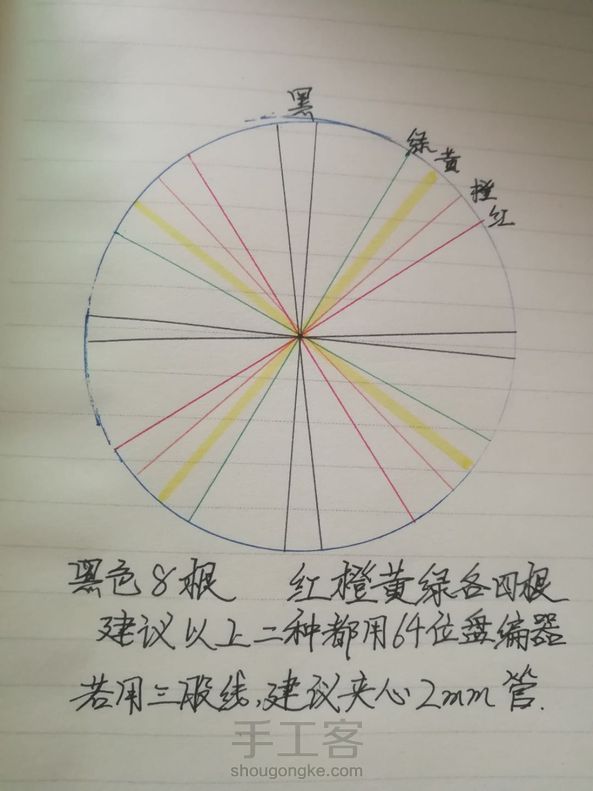 黑
绿
黄
橙
红
黑色8根 红橙黄绿各四根
建议以上二种都用64位盘编器
若用三股线,建议夹心2mm管.
手工客
shougongke.com